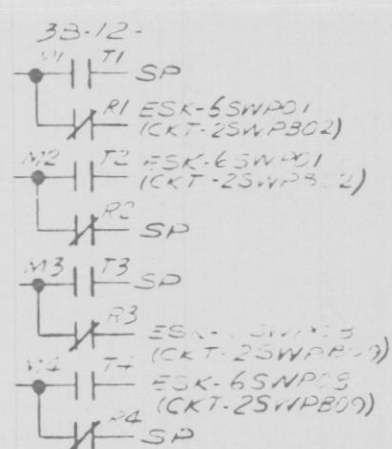 3B-12-
M1 T1 SP
R1 ESK-6SWP01
(CKT-2SWPB02)
M2 T2 ESK-6SWP01
R2 SP
M3 T3 SP
R3
(CKT-2SWPB09)
M4 T4 ESK-6SWP08
(CKT-2SWPB09)
R4 SP